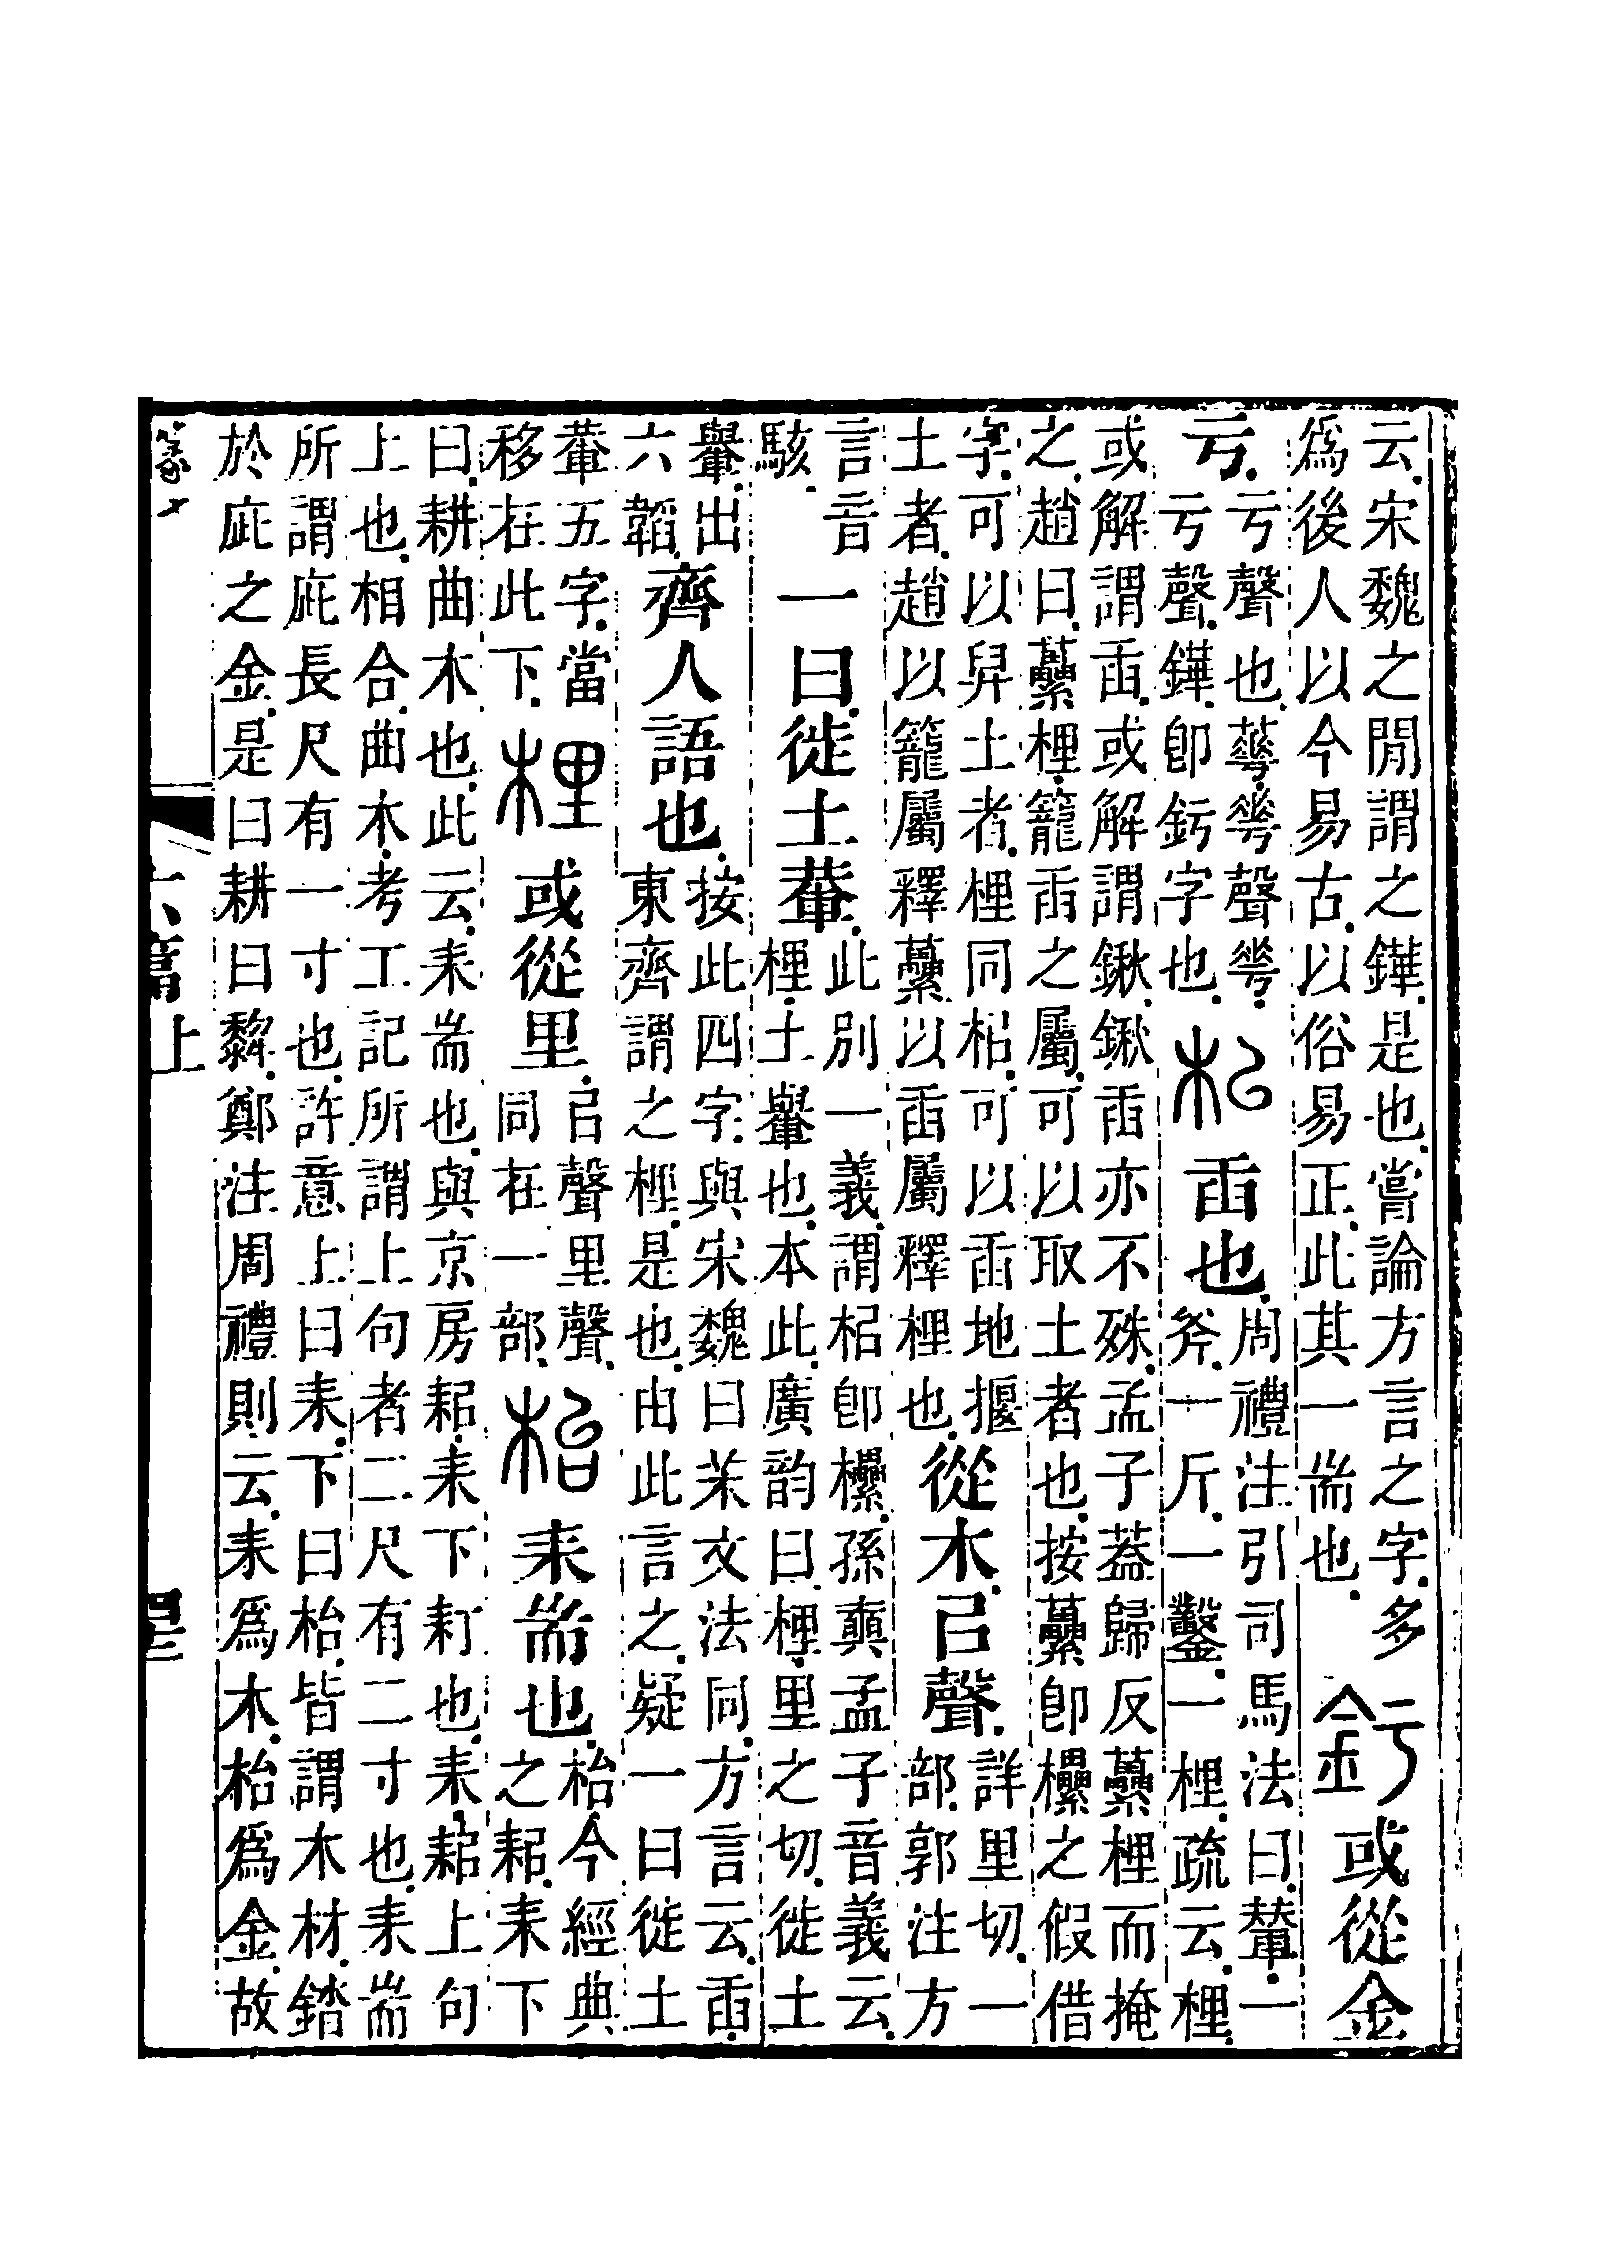 云。宋魏之閒謂之鏵。是也。嘗論方言之字。多
爲後人以今易古。以俗易正。此其一耑也。
釫或從金
亐。
亐聲也。蕚𠌶聲𠌶。
亐聲。鏵卽釫字也。
𣏌臿也。
周禮注引司馬法曰。輦。一
斧。一斤。一鑿。一梩。疏云。梩。
或解謂臿。或解謂鍬。鍬臿亦不殊。孟子葢歸反虆梩而掩
之。趙曰。虆梩。籠臿之屬。可以取土者也。按虆卽欙之假借
字。可以舁土者。梩同𣏌。可以臿地揠
土者。趙以籠屬釋虆。以臿屬釋梩也。
從木㠯聲。
詳里切。一
部。郭注方
言音
駭。
一曰徙土輂。
此別一義。謂𣏌卽欙。孫奭孟子音義云。
梩。土轝也。本此。廣韵曰。梩。里之切。徙土
轝。出
六韜。
齊人語也。
按此四字。與宋魏曰茉文法同。方言云。臿。
東齊謂之梩。是也。由此言之。疑一曰徙土
輂五字。當
移在此下。
梩或從里。
㠯聲里聲。
同在一部。
枱耒耑也。
枱今經典
之耜。耒下
曰。耕曲木也。此云。耒耑也。與京房耜耒下耓也。耒。耜上句
上也。相合。曲木。考工記所謂上句者二尺有二寸也。耒耑
所謂庛長尺有一寸也。許意上曰耒。下曰枱。皆謂木材。錔
於庛之金。是曰耕曰犂。鄭注周禮則云。耒爲木。枱爲金。故
六篇上